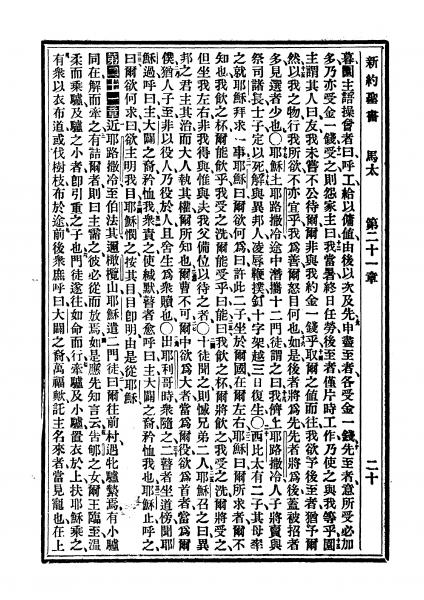 新約聖書 馬太 第二十一章 二十
暮園主語操會者曰呼工給以傭値由後以次及先申盡至者各受金一錢先至者意所受必加
多乃亦受金一錢受之則怨家主曰我當暑終日任勞後至者僅片時工作乃使之與我等乎園
主謂其人曰友我未嘗不公待爾爾非與我約金一錢乎取爾之値而往我欲予後至者猶予爾
然以我之物行我所欲不亦宜乎我爲善爾怒目何也如是後者將爲先先者將爲後蓋被招者
多見選者少也〇耶穌上耶路撒冷途中潛攜十二門徒謂之曰我儕上耶路撒冷人子將賣與
祭司諸長士子定以死解與異邦人凌辱鞭撲釘十字架越三日復生〇西比太有二子其母率
之就耶穌拜求一事耶穌曰爾欲何爲曰許此二子坐於爾國在爾左右耶穌曰爾所求者爾不
知也我飲之杯爾能飲乎我受之洗爾能受乎曰能曰我飲之杯爾將飲之我受之洗爾將受之
但坐我左右非我得與惟與夫我父備位以待之者〇十徒聞之則憾兄弟二人耶穌召之曰異
邦之君主其治而大人執其權爾所知也爾曹不可爾中欲爲大者當爲爾役欲爲首者當爲爾
僕猶人子至非以役人乃役於人且舍生爲衆贖也〇出耶利哥時衆隨之二瞽者坐道傍聞耶
穌過呼曰主大闢之裔矜恤我衆責之使緘默瞽者愈呼曰主大闢之裔矜恤我也耶穌止呼之
曰爾欲何求曰欲主明我目耶穌憫之按其目目卽明由是從耶穌
第二十一章近耶路撒冷至伯法其邇橄欖山耶穌遣二門徒曰爾往前村遇牝驢縶焉有小驢
同在解而牽之有詰爾者則曰主需之彼必從而放焉如是應先知言云告郇之女爾王臨至温
柔而乘驢及驢之小者卽引重之子也門徒遂往如命而行牽驢及小驢置衣於上扶耶穌乘之
有衆以衣布道或伐樹枝布於途前後衆應呼曰大闢之裔萬福歟託主名來者當見寵也在上